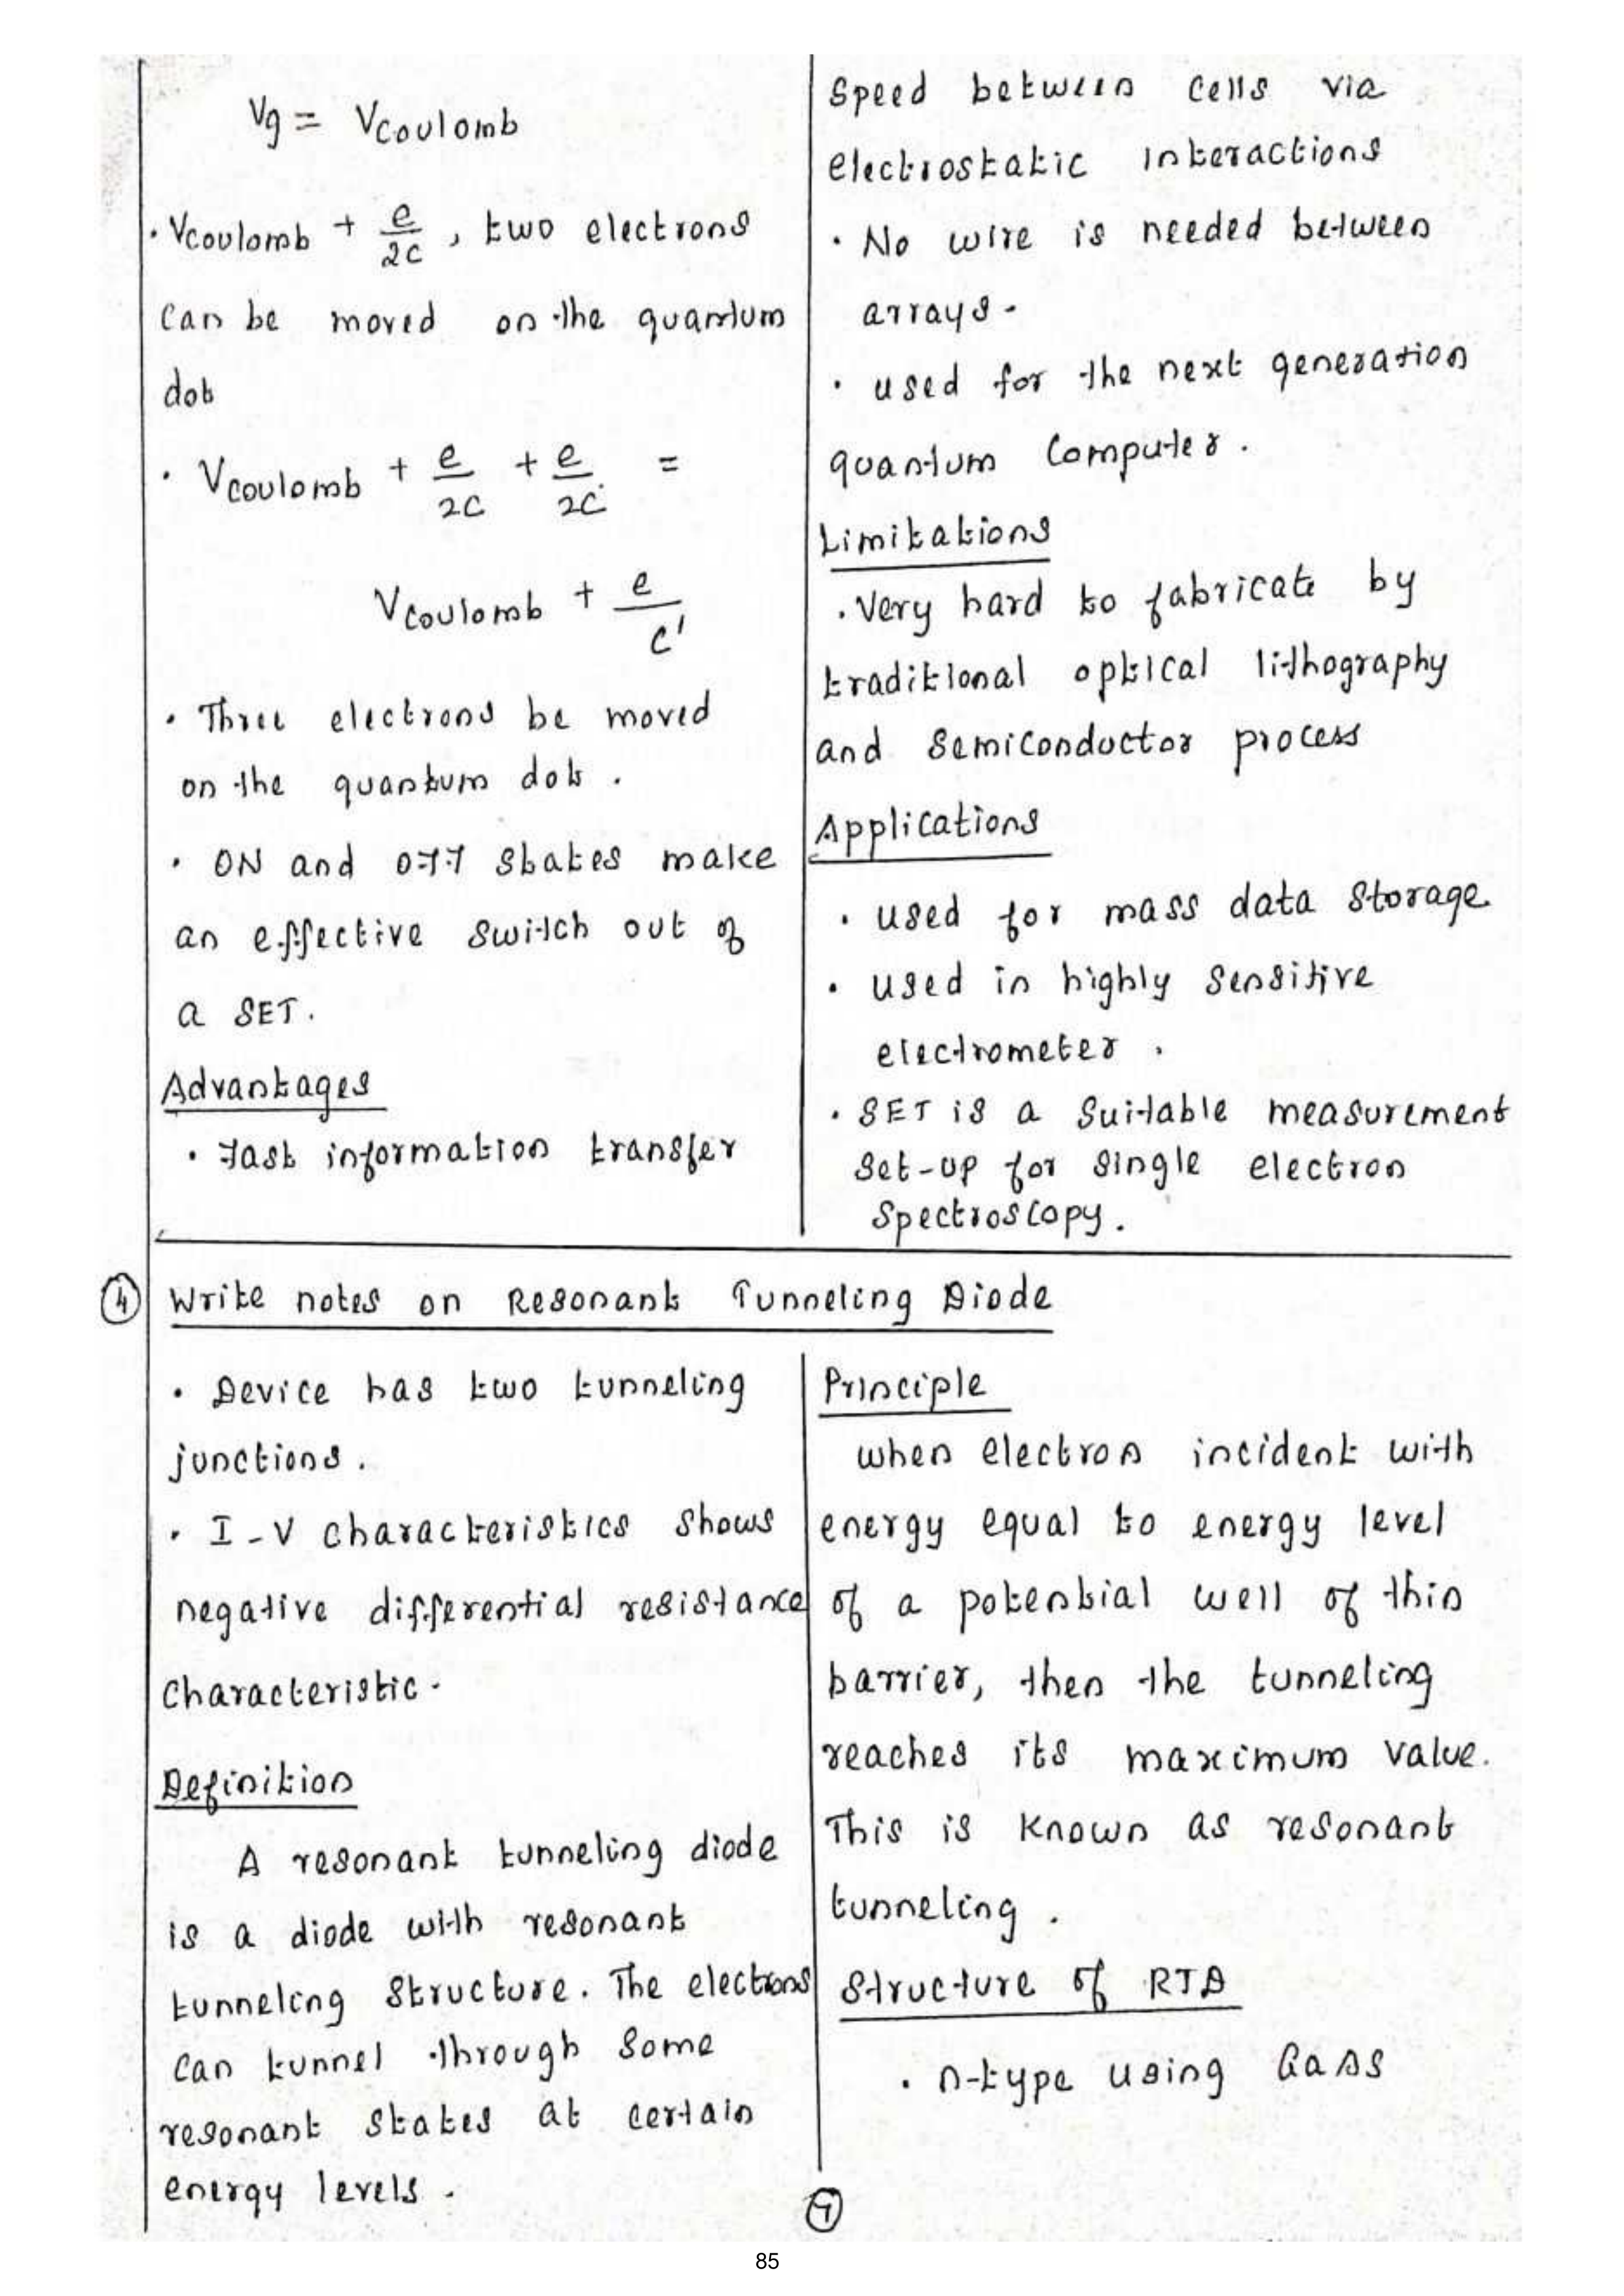 Vg = Vcoulomb
· Vcoulomb + e/2c , two electrons
can be moved on the quantum
dot
· Vcoulomb + e/2c + e/2c =
Vcoulomb + e/c'
· Three electrons be moved
on the quantum dot .
· ON and OFF states make
an effective switch out of
a SET.
Advantages
· Fast information transfer
Speed between cells via
electrostatic interactions
· No wire is needed between
arrays.
· used for the next generation
quantum computer .
Limitations
· Very hard to fabricate by
traditional optical lithography
and semiconductor process
Applications
· used for mass data storage
· used in highly sensitive
electrometer .
· SET is a suitable measurement
set-up for single electron
spectroscopy .
④ Write notes on Resonant Tunneling Diode
· Device has two tunneling
junctions .
· I-V characteristics shows
negative differential resistance
characteristic .
Definition
A resonant tunneling diode
is a diode with resonant
tunneling structure. The electrons
can tunnel through some
resonant states at certain
energy levels .
Principle
when electron incident with
energy equal to energy level
of a potential well of thin
barrier, then the tunneling
reaches its maximum value.
This is known as resonant
tunneling .
Structure of RTD
· n-type using GaAs
⑦
85